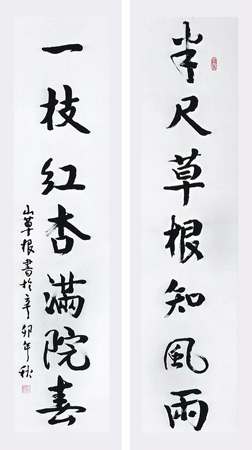 半尺草根知风雨
一枝红杏满院春
山草根書於辛卯年秋